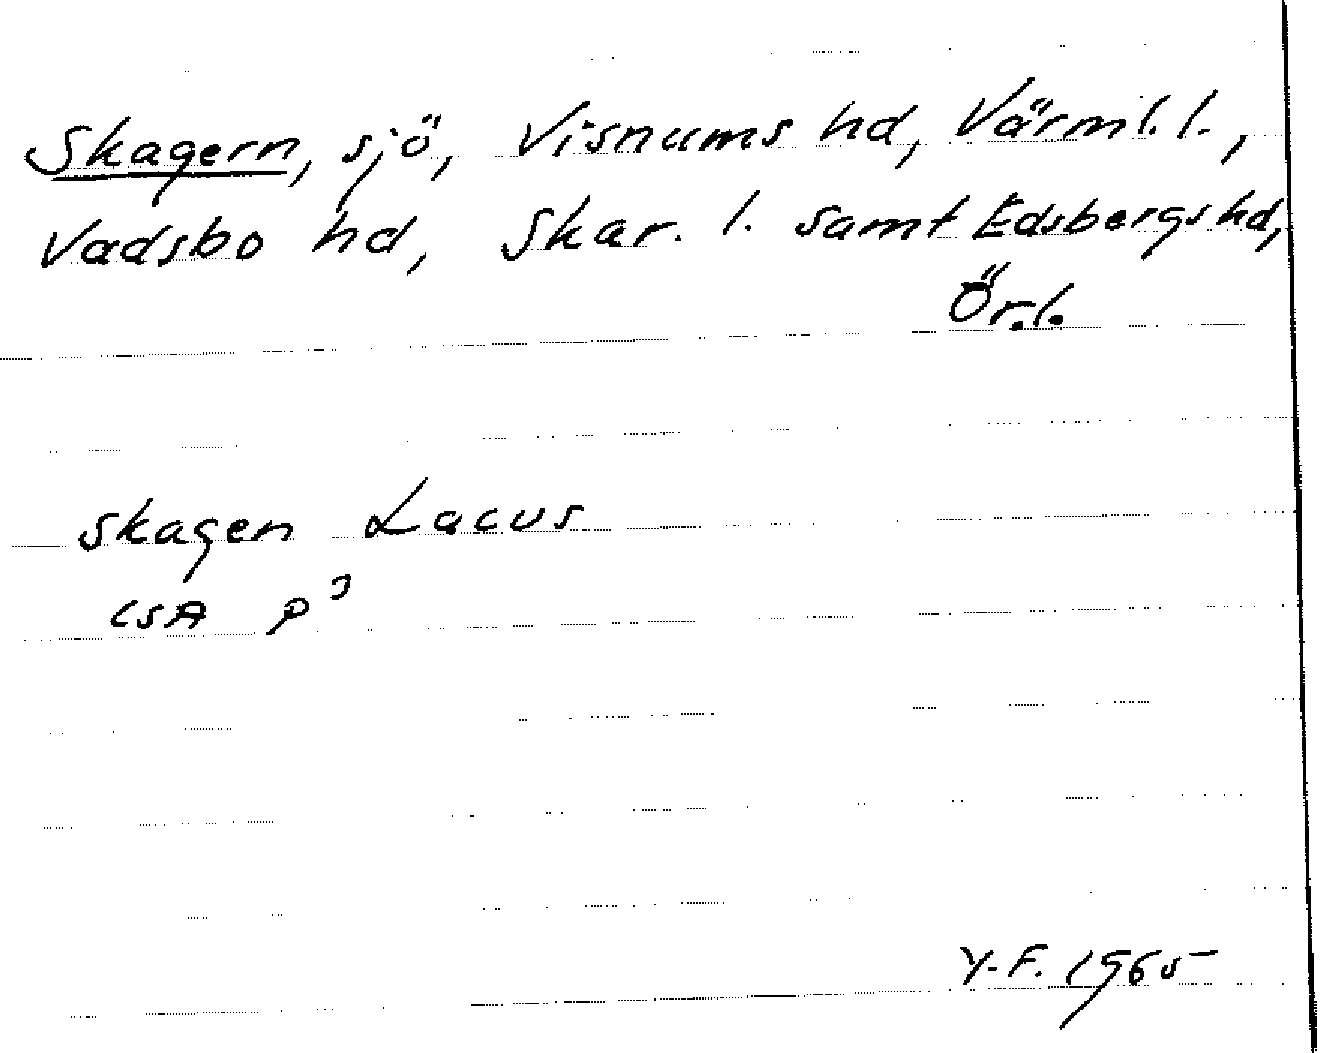 Skagern, sjö, Visnums hd, Värml. l.,
Vadsbo hd, Skar. l. samt Edsbergs hd,
Ör. l.
Skagen Lacus
LSA p³
Y.F. 1965